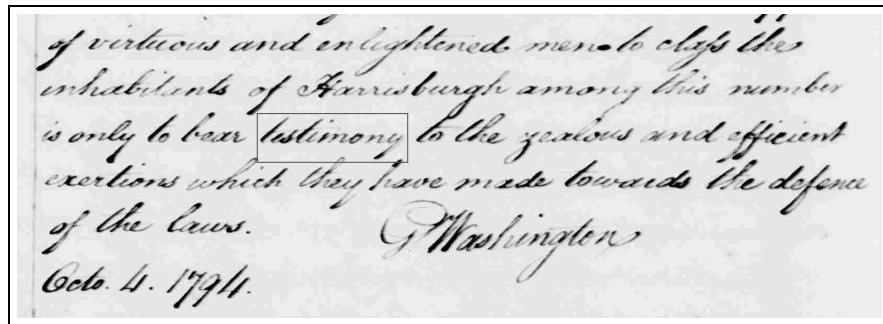 of virtuous and enlightened men to class the
inhabitants of Harrisburgh among this number
is only to bear testimony to the zealous and efficient
exertions which they have made towards the defence
of the laws.
G. Washington
Octo. 4. 1794.